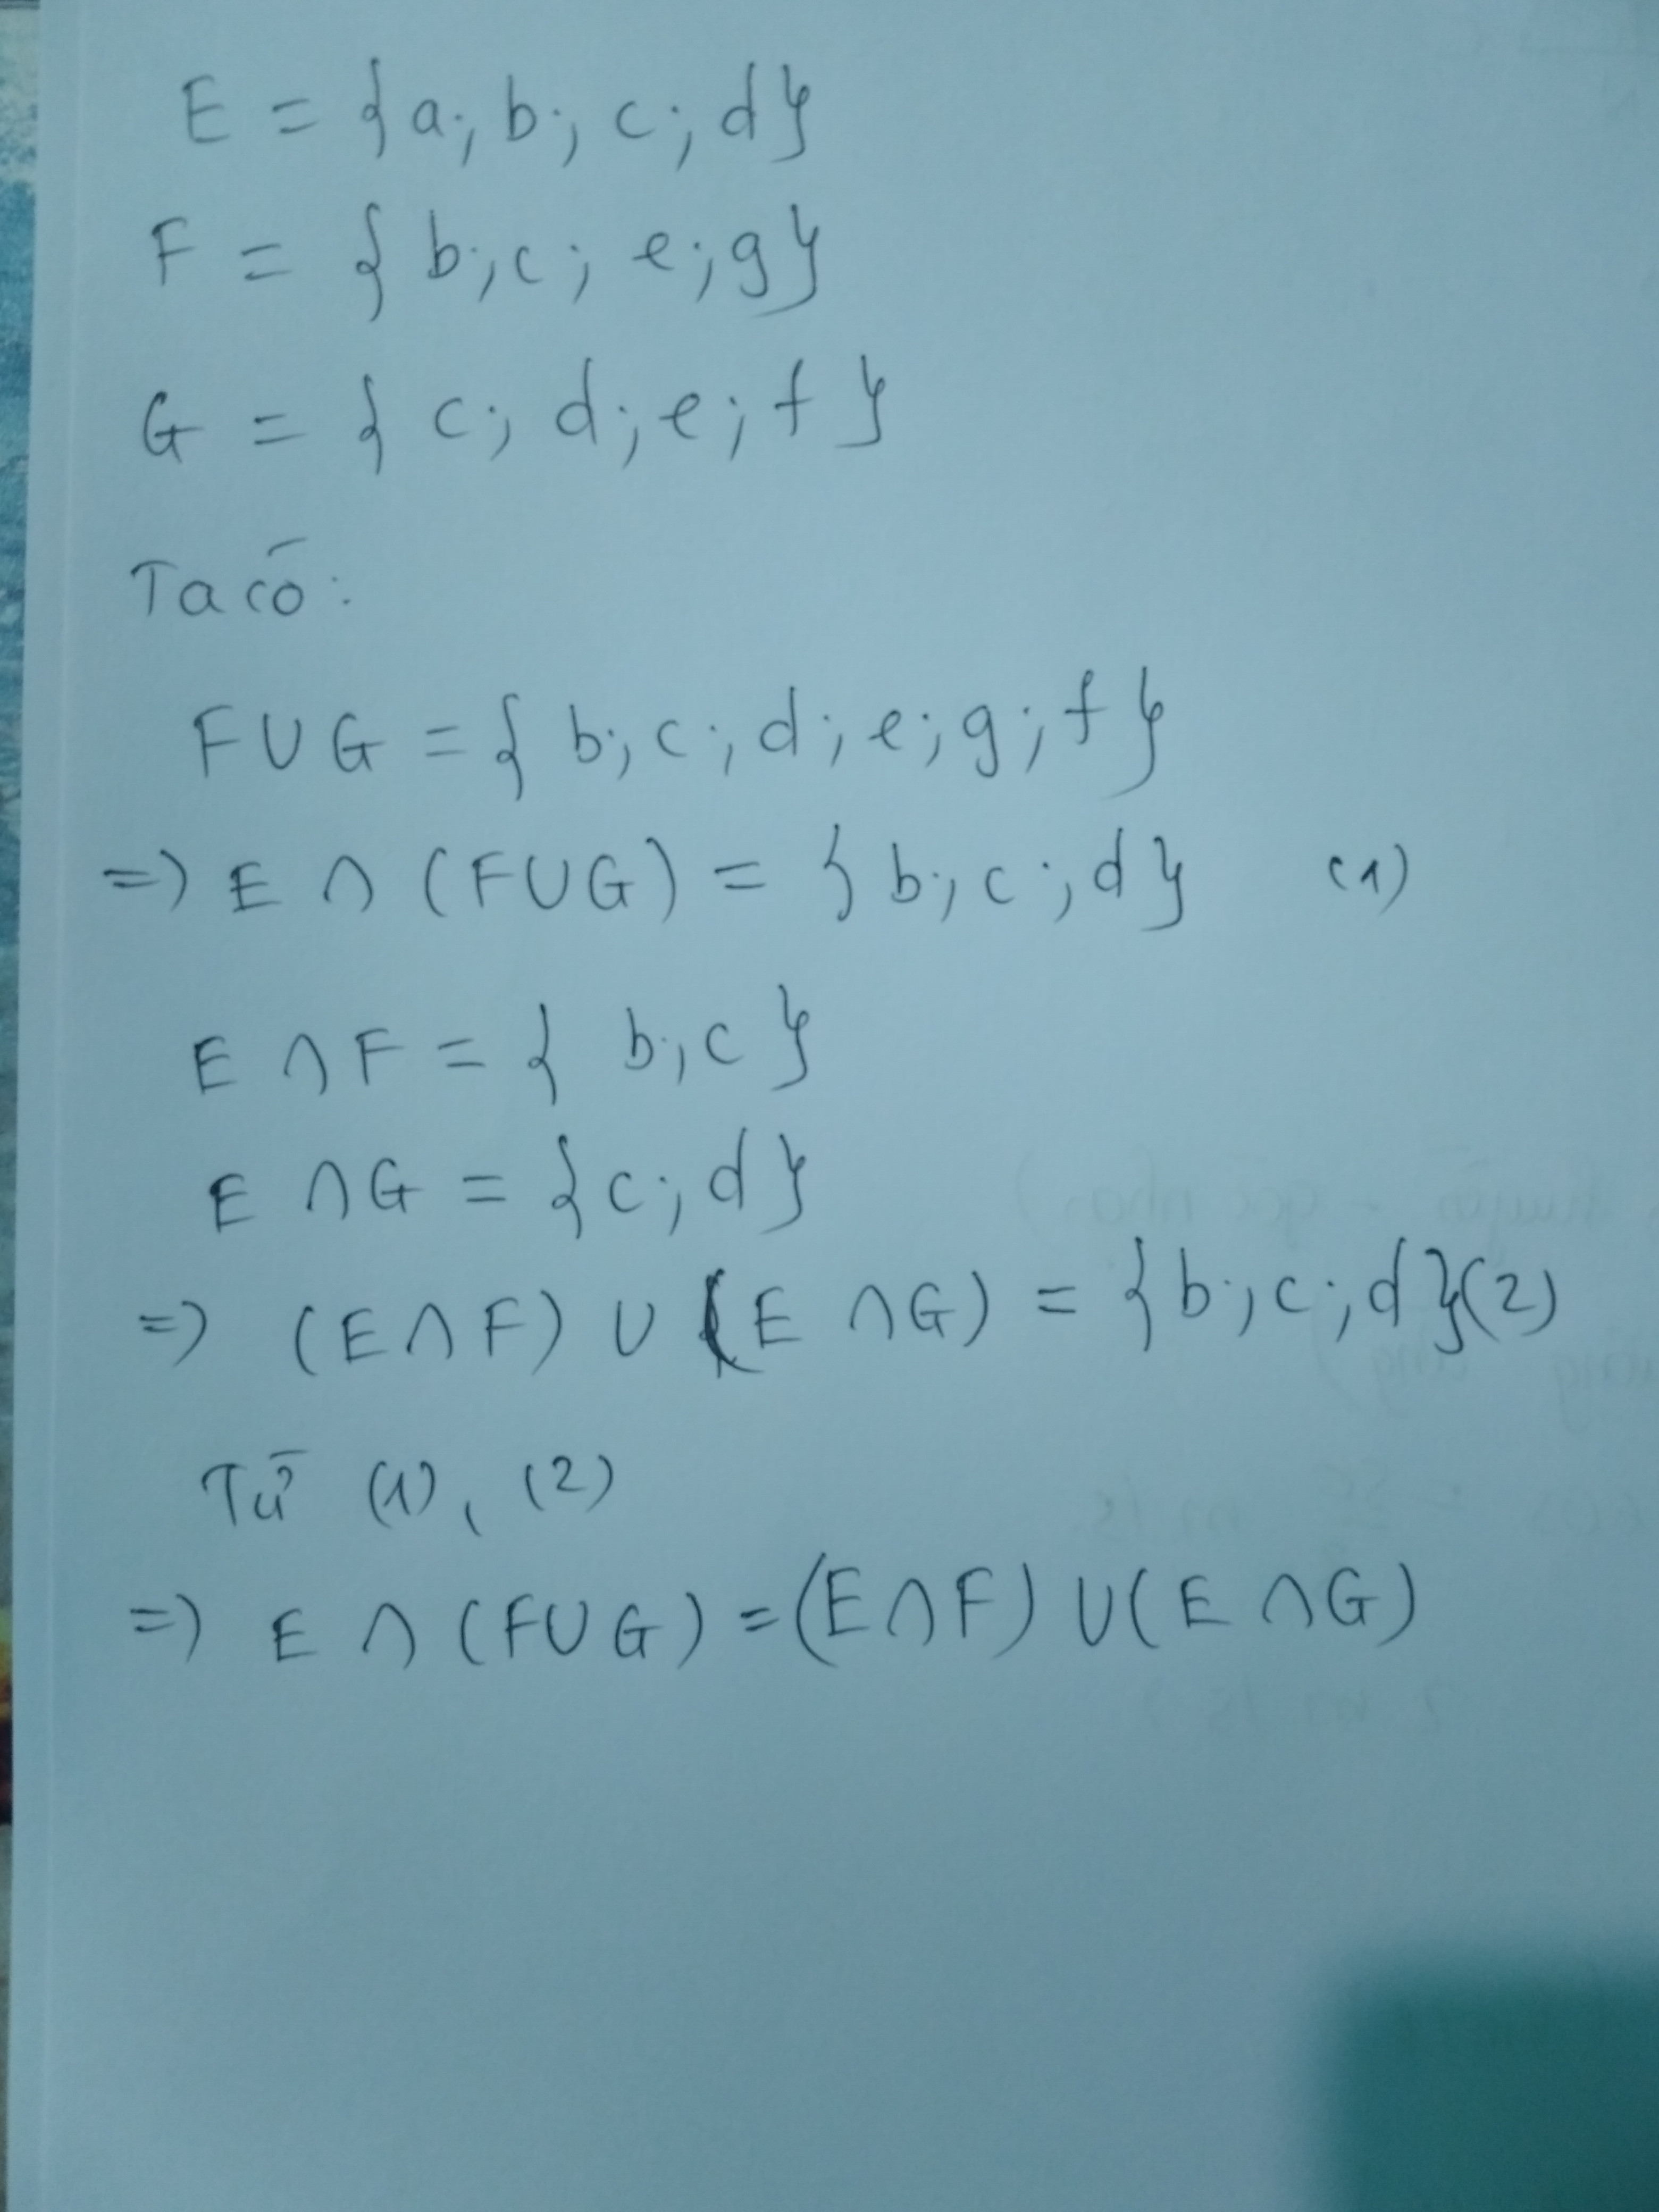 E = {a; b; c; d}
F = {b; c; e; g}
G = {c; d; e; f}
Ta có:
F∪G = {b; c; d; e; g; f}
=> E ∩ (F∪G) = {b; c; d} (1)
E ∩ F = {b; c}
E ∩ G = {c; d}
=> (E∩F) ∪ (E ∩ G) = {b; c; d} (2)
Từ (1), (2)
=> E ∩ (F∪G) = (E∩F) ∪ (E ∩ G)